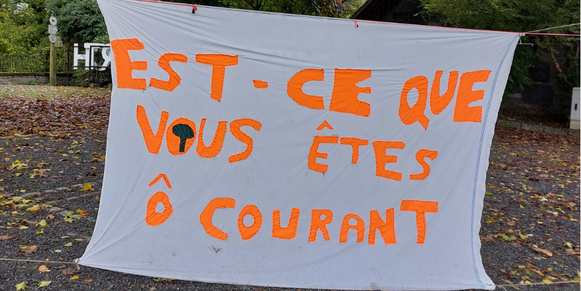 EST-CE QUE
VOUS ÊTES
Ô COURANT